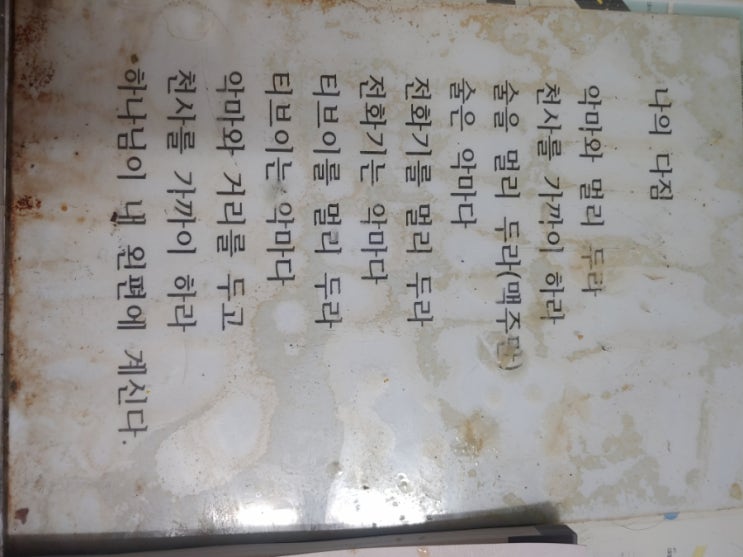 나의 다짐
악마와 멀리 두라
천사를 가까이 하라
술을 멀리 두라(맥주만)
술은 악마다
전화기를 멀리 두라
전화기는 악마다
티브이를 멀리 두라
티브이는 악마다
악마와 거리를 두고
천사를 가까이 하라
하나님이 내 왼편에 계신다.